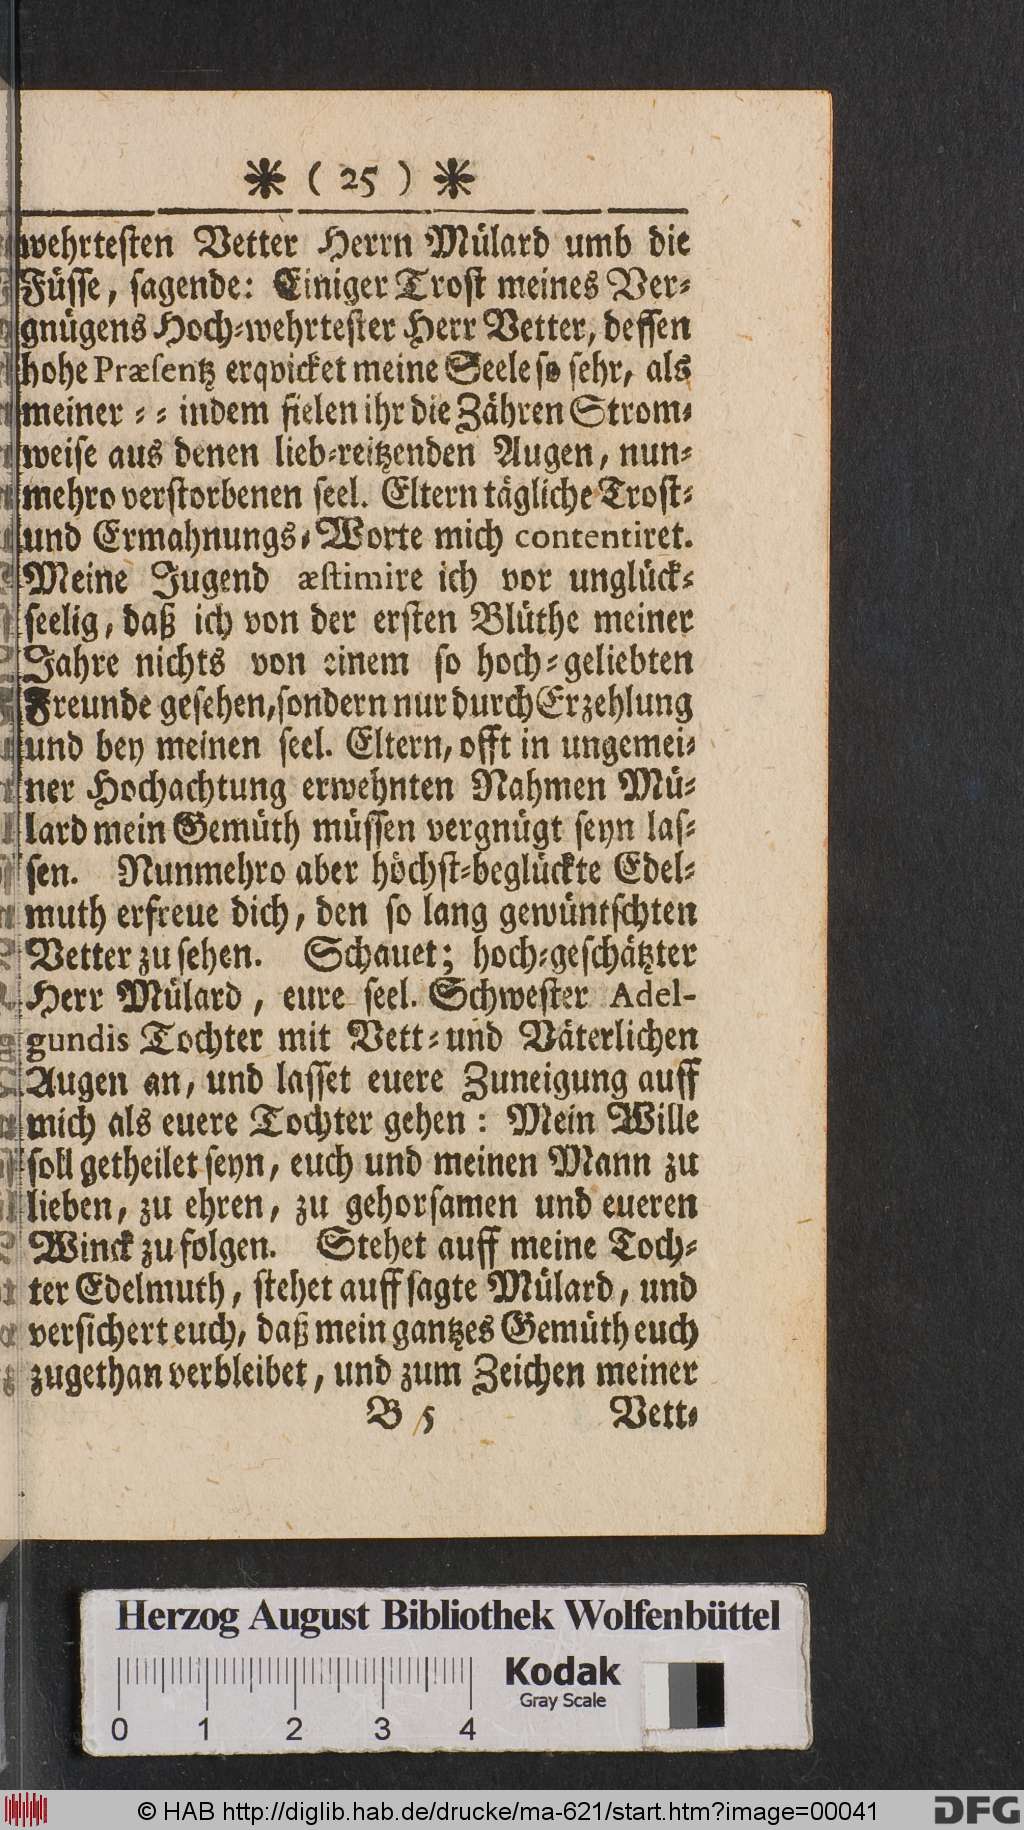 * ( 25 ) *
wehrtesten Vetter Herrn Mülard umb die
Füsse, sagende: Einiger Trost meines Ver-
gnügens Hoch-wehrtester Herr Vetter, dessen
hohe Præsentz erqvicket meine Seele so sehr, als
meiner - - indem fielen ihr die Zähren Strom-
weise aus denen lieb-reitzenden Augen, nun-
mehro verstorbenen seel. Eltern tägliche Trost-
und Ermahnungs-Worte mich contentiret.
Meine Jugend æstimire ich vor unglück-
seelig, daß ich von der ersten Blüthe meiner
Jahre nichts von einem so hoch-geliebten
Freunde gesehen, sondern nur durch Erzehlung
und bey meinen seel. Eltern, offt in ungemei-
ner Hochachtung erwehnten Nahmen Mü-
lard mein Gemüth müssen vergnügt seyn las-
sen. Nunmehro aber höchst-beglückte Edel-
muth erfreue dich, den so lang gewüntschten
Vetter zu sehen. Schauet; hoch-geschätzter
Herr Mülard, eure seel. Schwester Adel-
gundis Tochter mit Vett- und Väterlichen
Augen an, und lasset euere Zuneigung auff
mich als euere Tochter gehen: Mein Wille
soll getheilet seyn, euch und meinen Mann zu
lieben, zu ehren, zu gehorsamen und eueren
Winck zu folgen. Stehet auff meine Toch-
ter Edelmuth, stehet auff sagte Mülard, und
versichert euch, daß mein gantzes Gemüth euch
zugethan verbleibet, und zum Zeichen meiner
B 5 Vett-
Herzog August Bibliothek Wolfenbüttel
Kodak
Gray Scale
0 1 2 3 4
© HAB http://diglib.hab.de/drucke/ma-621/start.htm?image=00041
DFG